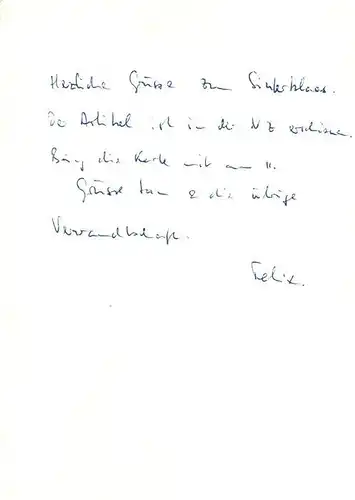 Herzliche Grüsse zum Sinterklaas.
Der Artikel ist in der NZ erschienen.
Bring die Karte mit am 11.
Grüsse & die übrige
Verwandtschaft.
Felix.